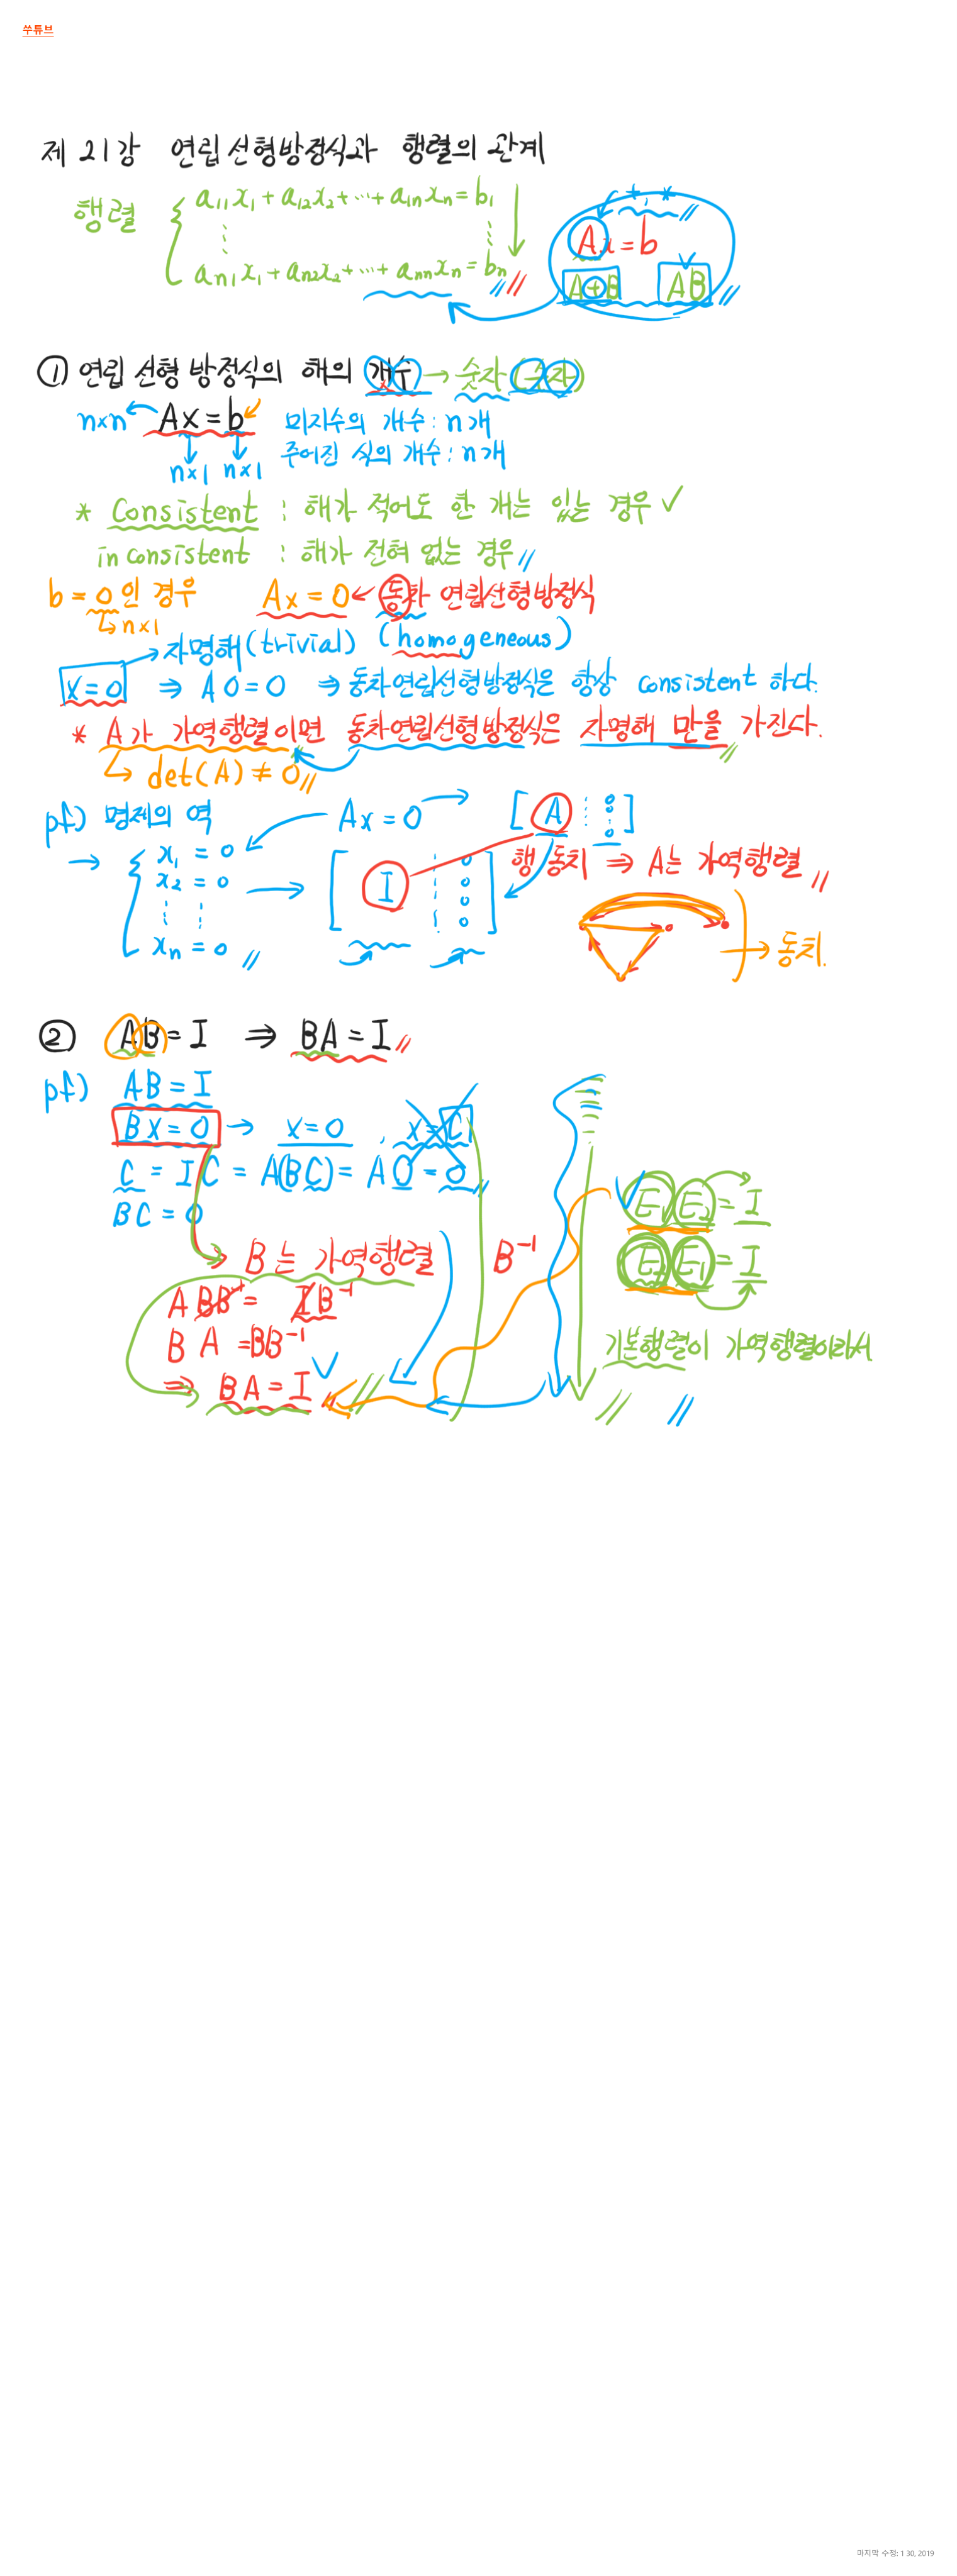 쑤튜브
제 21강 연립선형방정식과 행렬의 관계
행렬
a₁₁x₁ + a₁₂x₂ + ⋯ + a₁ₙxₙ = b₁
⋮ ⋮
aₙ₁x₁ + aₙ₂x₂ + ⋯ + aₙₙxₙ = bₙ
+, *
Ax = b
A+B AB
① 연립 선형 방정식의 해의 개수 → 숫자 (순자)
n×n ← Ax = b
n×1 n×1
미지수의 개수 : n개
주어진 식의 개수 : n개
* Consistent : 해가 적어도 한 개는 있는 경우 ✓
inconsistent : 해가 전혀 없는 경우
b = 0인 경우 Ax = 0 ← 동차 연립선형방정식
↳ n×1
→ 자명해(trivial) (homogeneous)
x=0 ⇒ A0=0 ⇒ 동차연립선형방정식은 항상 consistent 하다.
* A가 가역행렬이면 동차연립선형방정식은 자명해 만을 가진다.
↳ det(A) ≠ 0
pf) 명제의 역 Ax = 0 → [ A ⋮ 0 0 0 ]
→ { x₁ = 0
x₂ = 0
⋮ ⋮
xₙ = 0
→ [ I ⋮ 0 0 0 0 ]
행 동치 ⇒ A는 가역행렬
→ 동치.
② AB = I ⇒ BA = I
pf) AB = I
Bx = 0 → x=0 , x=C
C = IC = A(BC) = A0 = 0
BC = 0
→ B는 가역행렬 B⁻¹
ABB⁻¹ = IB⁻¹
B A = BB⁻¹
⇒ BA = I
E₁E₂ = I
E₂E₁ = I
기본행렬이 가역행렬이라서
마지막 수정: 1 30, 2019